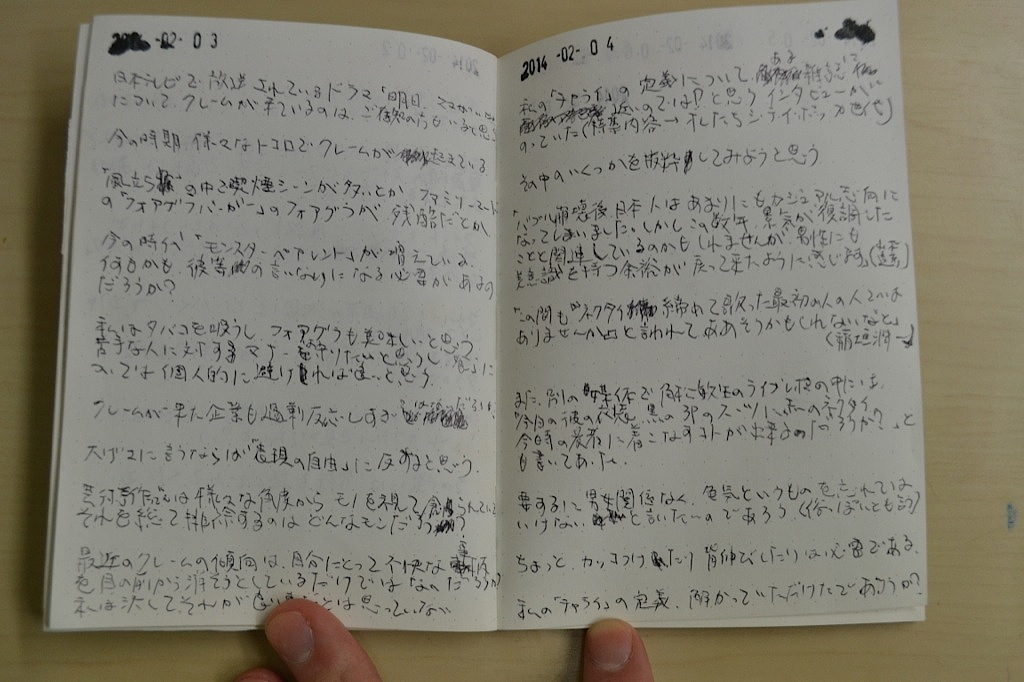 -02- 03
日本テレビで放送されているドラマ「明日、ママがいない」
について、クレームが来ているのは、ご存知の方もいると思う
今の時期、様々なトコロでクレームが増えている
「風立ちぬ」の中で喫煙シーンが多いとか ファミリーマート
の「フォアグラバーガー」のフォアグラが残酷だとか
今の時代「モンスターペアレント」が増えている、
何もかも、彼等の言いなりになる必要があるの
だろうか?
私はタバコを吸うし、フォアグラも美味しいと思う
苦手な人に対するマナーを守りたいと思うし、
ついては個人的に避ければ良いと思う.
クレームが来た企業も過剰反応しすぎ
大げさに言うならば「表現の自由」に反すると思う.
芸付作品は様々な角度からモノを視て
それを総て排除するのはどんなモンだろう
最近のクレームの傾向は、自分にとって不快な
を目の前から消そうとしているだけではないのだろうか
私は決してそれが良いことは思っていない
2014 -02- 04
私の「チャライ」の定義について、ある雑誌で
近いのでは!?と思うインタビューが
のっていた(特集内容→私たちシティボーイ世代)
その中のいくつかを抜粋してみようと思う
「バブル崩壊後、日本人はあまりにもカジュアル志向に
なってしまいました。しかしこの数年、景気が復調した
ことと関連しているのかもしれませんが、男性にも
見意識を持つ余裕が戻って来たように感じます」
「この間も"ネクタイ 締めて歌った最初の人の人では
ありませんか"と言われて ああそうかもしれないなと」
(稲垣潤一)
また、別の媒体で 彼のライブ の中には、
「今日の彼の衣装、黒の3Pのスーツに赤のネクタイ、
今時の若者に着こなすコトが出来るのだろうか?」と
も書いてあった.
要するに 男女関係なく、色気というものを忘れては
いけない と言いたいのであろう
ちょっと、カッコつけたり 背伸びしたりは必要である.
私の「チャライ」の定義、解かっていただけたであろうか?